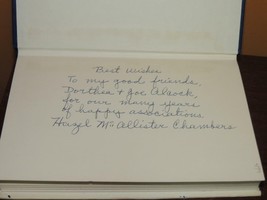 Best wishes
To my good friends,
Dorthea & Joe Alcock,
for our many years
of happy associations
Hazel McAllister Chambers